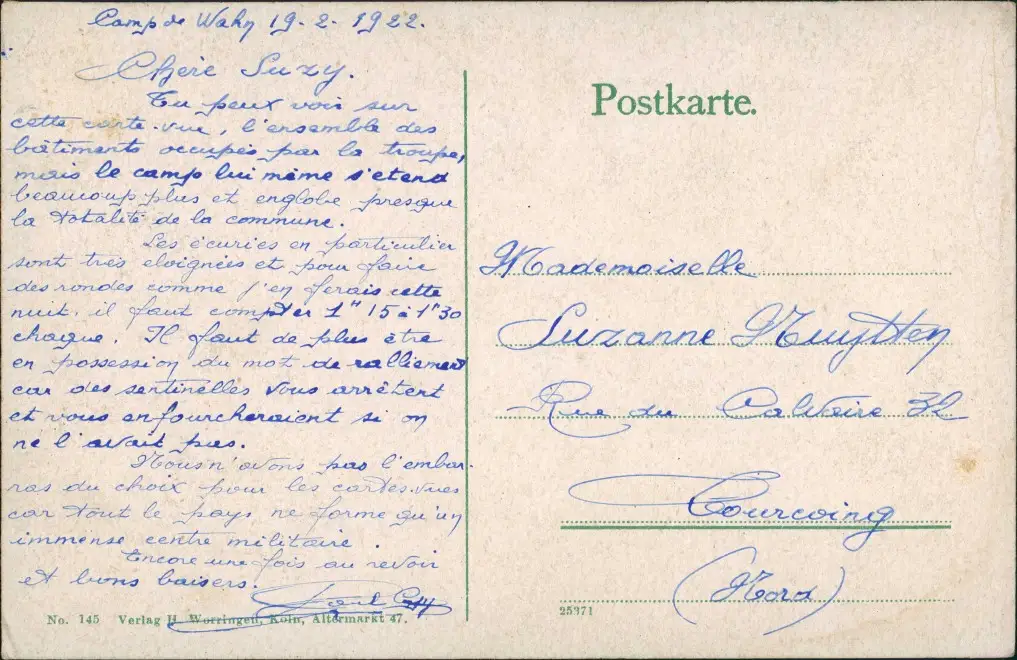 Camp de Wahn 19-2-1922.
Chère Suzy.
Tu peux voir sur
cette carte-vue, l'ensemble des
bâtiments occupés par la troupe,
mais le camp lui même s'étend
beaucoup plus et englobe presque
la totalité de la commune.
Les écuries en particulier
sont très eloignées et pour faire
des rondes comme j'en ferais cette
nuit, il faut compter 1h 15 à 1h 30
chaque. Il faut de plus être
en possession du mot de ralliement
car des sentinelles vous arrêtent
et vous enfourcheraient si on
ne l'avait pas.
Nous n'avons pas l'embar-
ras du choix pour les cartes-vues
car tout le pays ne forme qu'un
immense centre militaire.
Encore une fois au revoir
et bons baisers.
No. 145 Verlag H. Worringen, Köln, Altermarkt 47.
Postkarte.
Mademoiselle
Suzanne
Rue du Calvaire 32
Tourcoing
(Nord)
25371